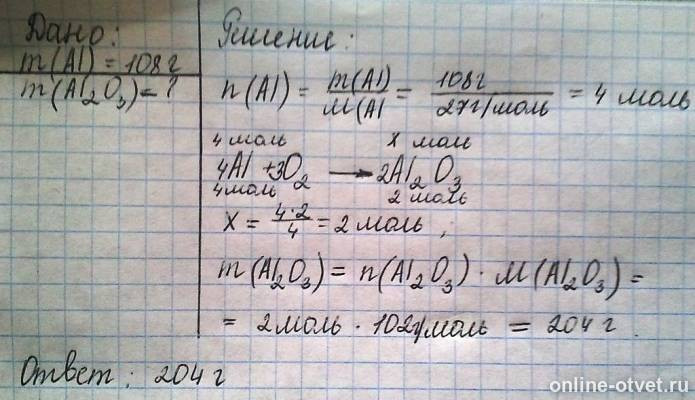 Дано:
m(Al) = 108 г
m(Al₂O₃) - ?
Решение:
n(Al) = m(Al)/M(Al = 108г/27г/моль = 4 моль
4 моль x моль
4Al + 3O₂ → 2Al₂O₃
4 моль 2 моль
x = 4·2/4 = 2 моль ;
m(Al₂O₃) = n(Al₂O₃) · M(Al₂O₃) =
= 2 моль · 102г/моль = 204 г.
Ответ: 204 г
online-otvet.ru